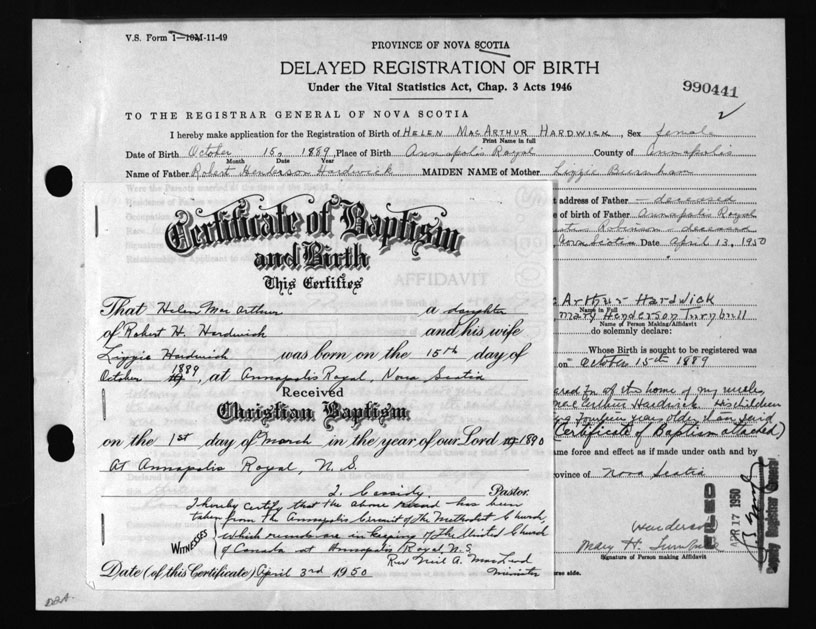 V.S. Form 1—10M-11-49
PROVINCE OF NOVA SCOTIA
DELAYED REGISTRATION OF BIRTH
Under the Vital Statistics Act, Chap. 3 Acts 1946
990441
TO THE REGISTRAR GENERAL OF NOVA SCOTIA
I hereby make application for the Registration of Birth of HELEN MACARTHUR HARDWICK, Sex female
Print Name in full
Date of Birth October 15, 1889, Place of Birth Annapolis Royal County of Annapolis
Month Date Year
Name of Father Robert Henderson Hardwick MAIDEN NAME of Mother Lizzie Burnham
t address of Father — deceased
e of birth of Father Annapolis Royal
Robinson - deceased
Nova Scotia Date April 13, 1950
Certificate of Baptism
and Birth
This Certifies
AFFIDAVIT
That Helen Mac Arthur a daughter
of Robert H. Hardwick and his wife
Lizzie Hardwick was born on the 15th day of
October 1889, at Annapolis Royal, Nova Scotia
Received
Christian Baptism
on the 1st day of March in the year of our Lord 1890
At Annapolis Royal, N.S.
J. Cassidy. Pastor.
I hereby certify that the above record has been
taken from the Annapolis Circuit of the Methodist Church,
which records are in keeping of the United Church
of Canada at Annapolis Royal, N.S.
WITNESSES
Rev Neil A. MacLeod
Minister
Date (of this Certificate) April 3rd 1950
Arthur Hardwick
Name in Full
Mary Henderson Turnbull
Name of Person Making Affidavit
do solemnly declare:
Whose Birth is sought to be registered was
on October 15th 1889
at home of my uncle,
MacArthur Hardwick His children
fourteen years older than I and
(Certificate of Baptism attached)
ame force and effect as if made under oath and by
rovince of Nova Scotia
Henderson
Mary H. Turnbull
Signature of Person making Affidavit
FILED
APR 17 1950
Deputy Registrar General
erse side.
DBA.